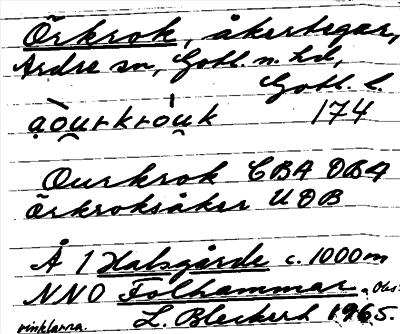 Örkrok, åkertegar,
Ardre sn, Gotl. n. hd,
Gotl. l.
174
Ourkrok CBA DBA
Örkroksåker UDB
Å 1 Halsgårde c. 1000 m
NNO Folhammar. Obs:
vinklarna. L. Bleckert 1965.